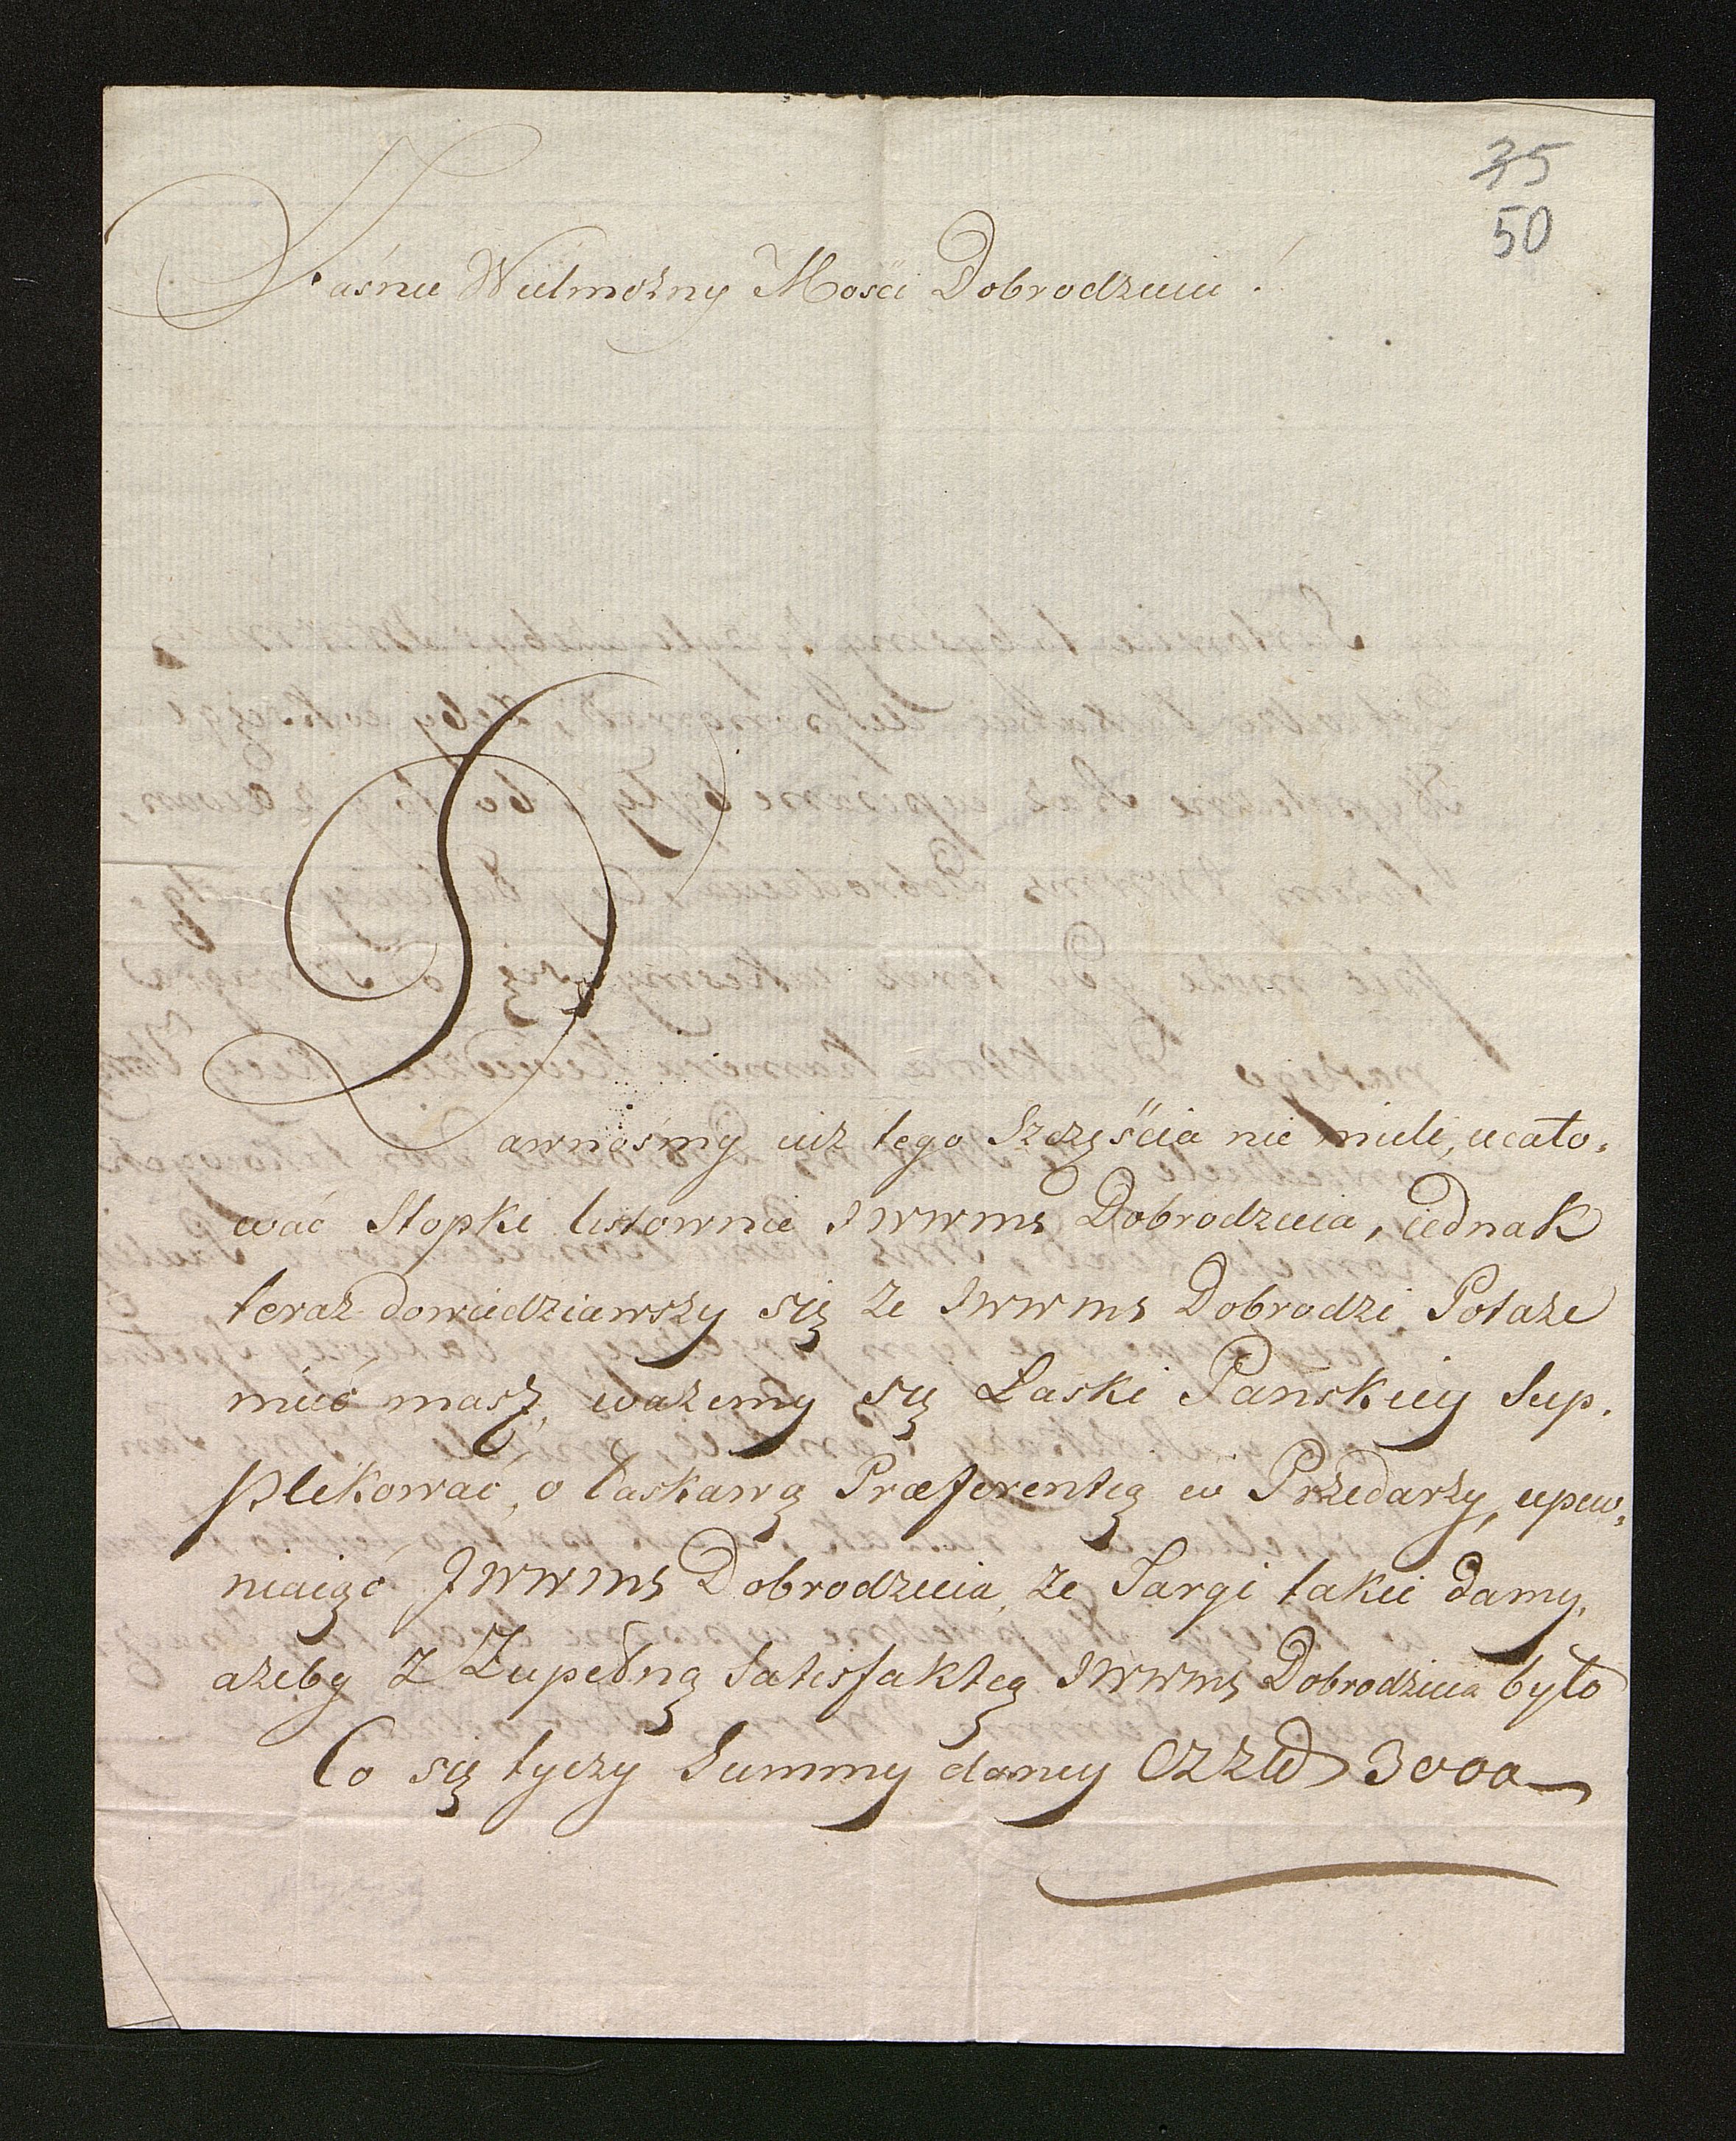 35
50
Jaśnie Wielmożny Mości Dobrodzieiu!
Dawnośmy iuż tego Szczęścia nie mieli, ucało-
wać Stopki listownie JWWMs Dobrodzieia, iednak
teraz dowiedziawszy się że JWWMs Dobrodzi Potaże
mieć masz, ważemy się Łaski Panskiey Sup-
plikować, o łaskawą Præferentią w Przedarzy, upew-
niaiąć JWWMs Dobrodzieia, że Targi takie damy,
ażeby z Zupełną Satisfaktią JWWMs Dobrodzieia było
Co się tyczy Summy daney 3000